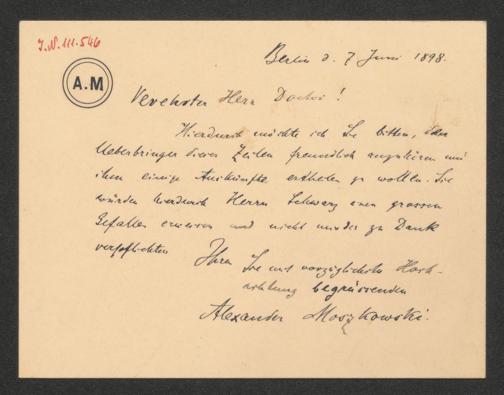 J.N. 111.546
A.M
Berlin d. 7 Juni 1898.
Verehrter Herr Doctor!
Hierdurch möchte ich Sie bitten, den
Ueberbringer dieser Zeilen freundlich anzuhören und
ihm einige Auskünfte ertheilen zu wollen. Sie
würden hierdurch Herrn Schwarz einen grossen
Gefallen erweisen und nicht minder zu Dank
verpflichten Ihren Sie mit vorzüglichster Hoch-
achtung begrüssenden
Alexander Moszkowski.